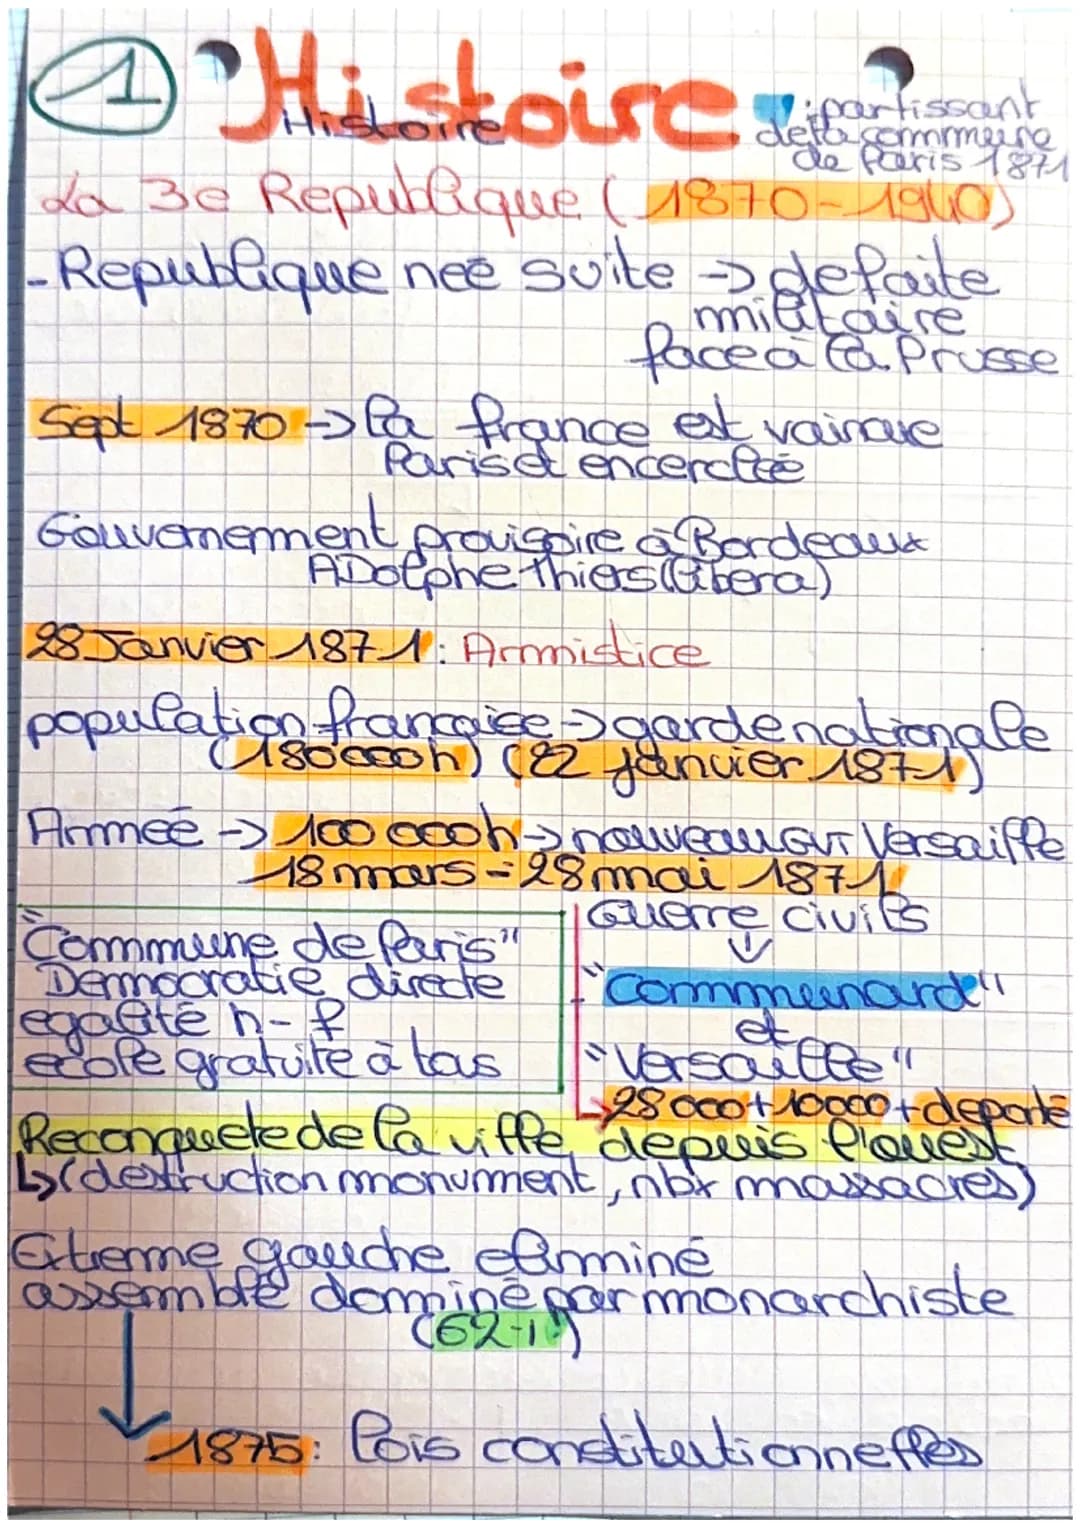 1 Histoire
Histoire
: partissant
de la commune
de Paris 1871
La 3e Republique (1870-1940)
- Republique neé suite -> defaite
militaire
face à la Prusse
Sept 1870 -> la france est vaincue
Paris est encerclée
Gouvernement provisoire à Bordeaux
ADolphe Thiers (libera)
28 Janvier 1871 : Armistice
population française -> garde nationale
(180 000 h) (22 janvier 1871)
Armeé -> 100 000 h -> nouveau Gvt Versaille
18 mars - 28 mai 1871
"Commune de Paris"
Democratie directe
egalité h - f
ecole gratuite à tous
Guerre civils
↓
"Communard"
et
"Versaille"
-> 28 000 + 10000 + deporté
Reconquete de la ville, depuis l'ouest
↳ (destruction monument, nbx massacres)
gauche eliminé
assemblé dominé par monarchiste
1875 : lois constitutionnelles